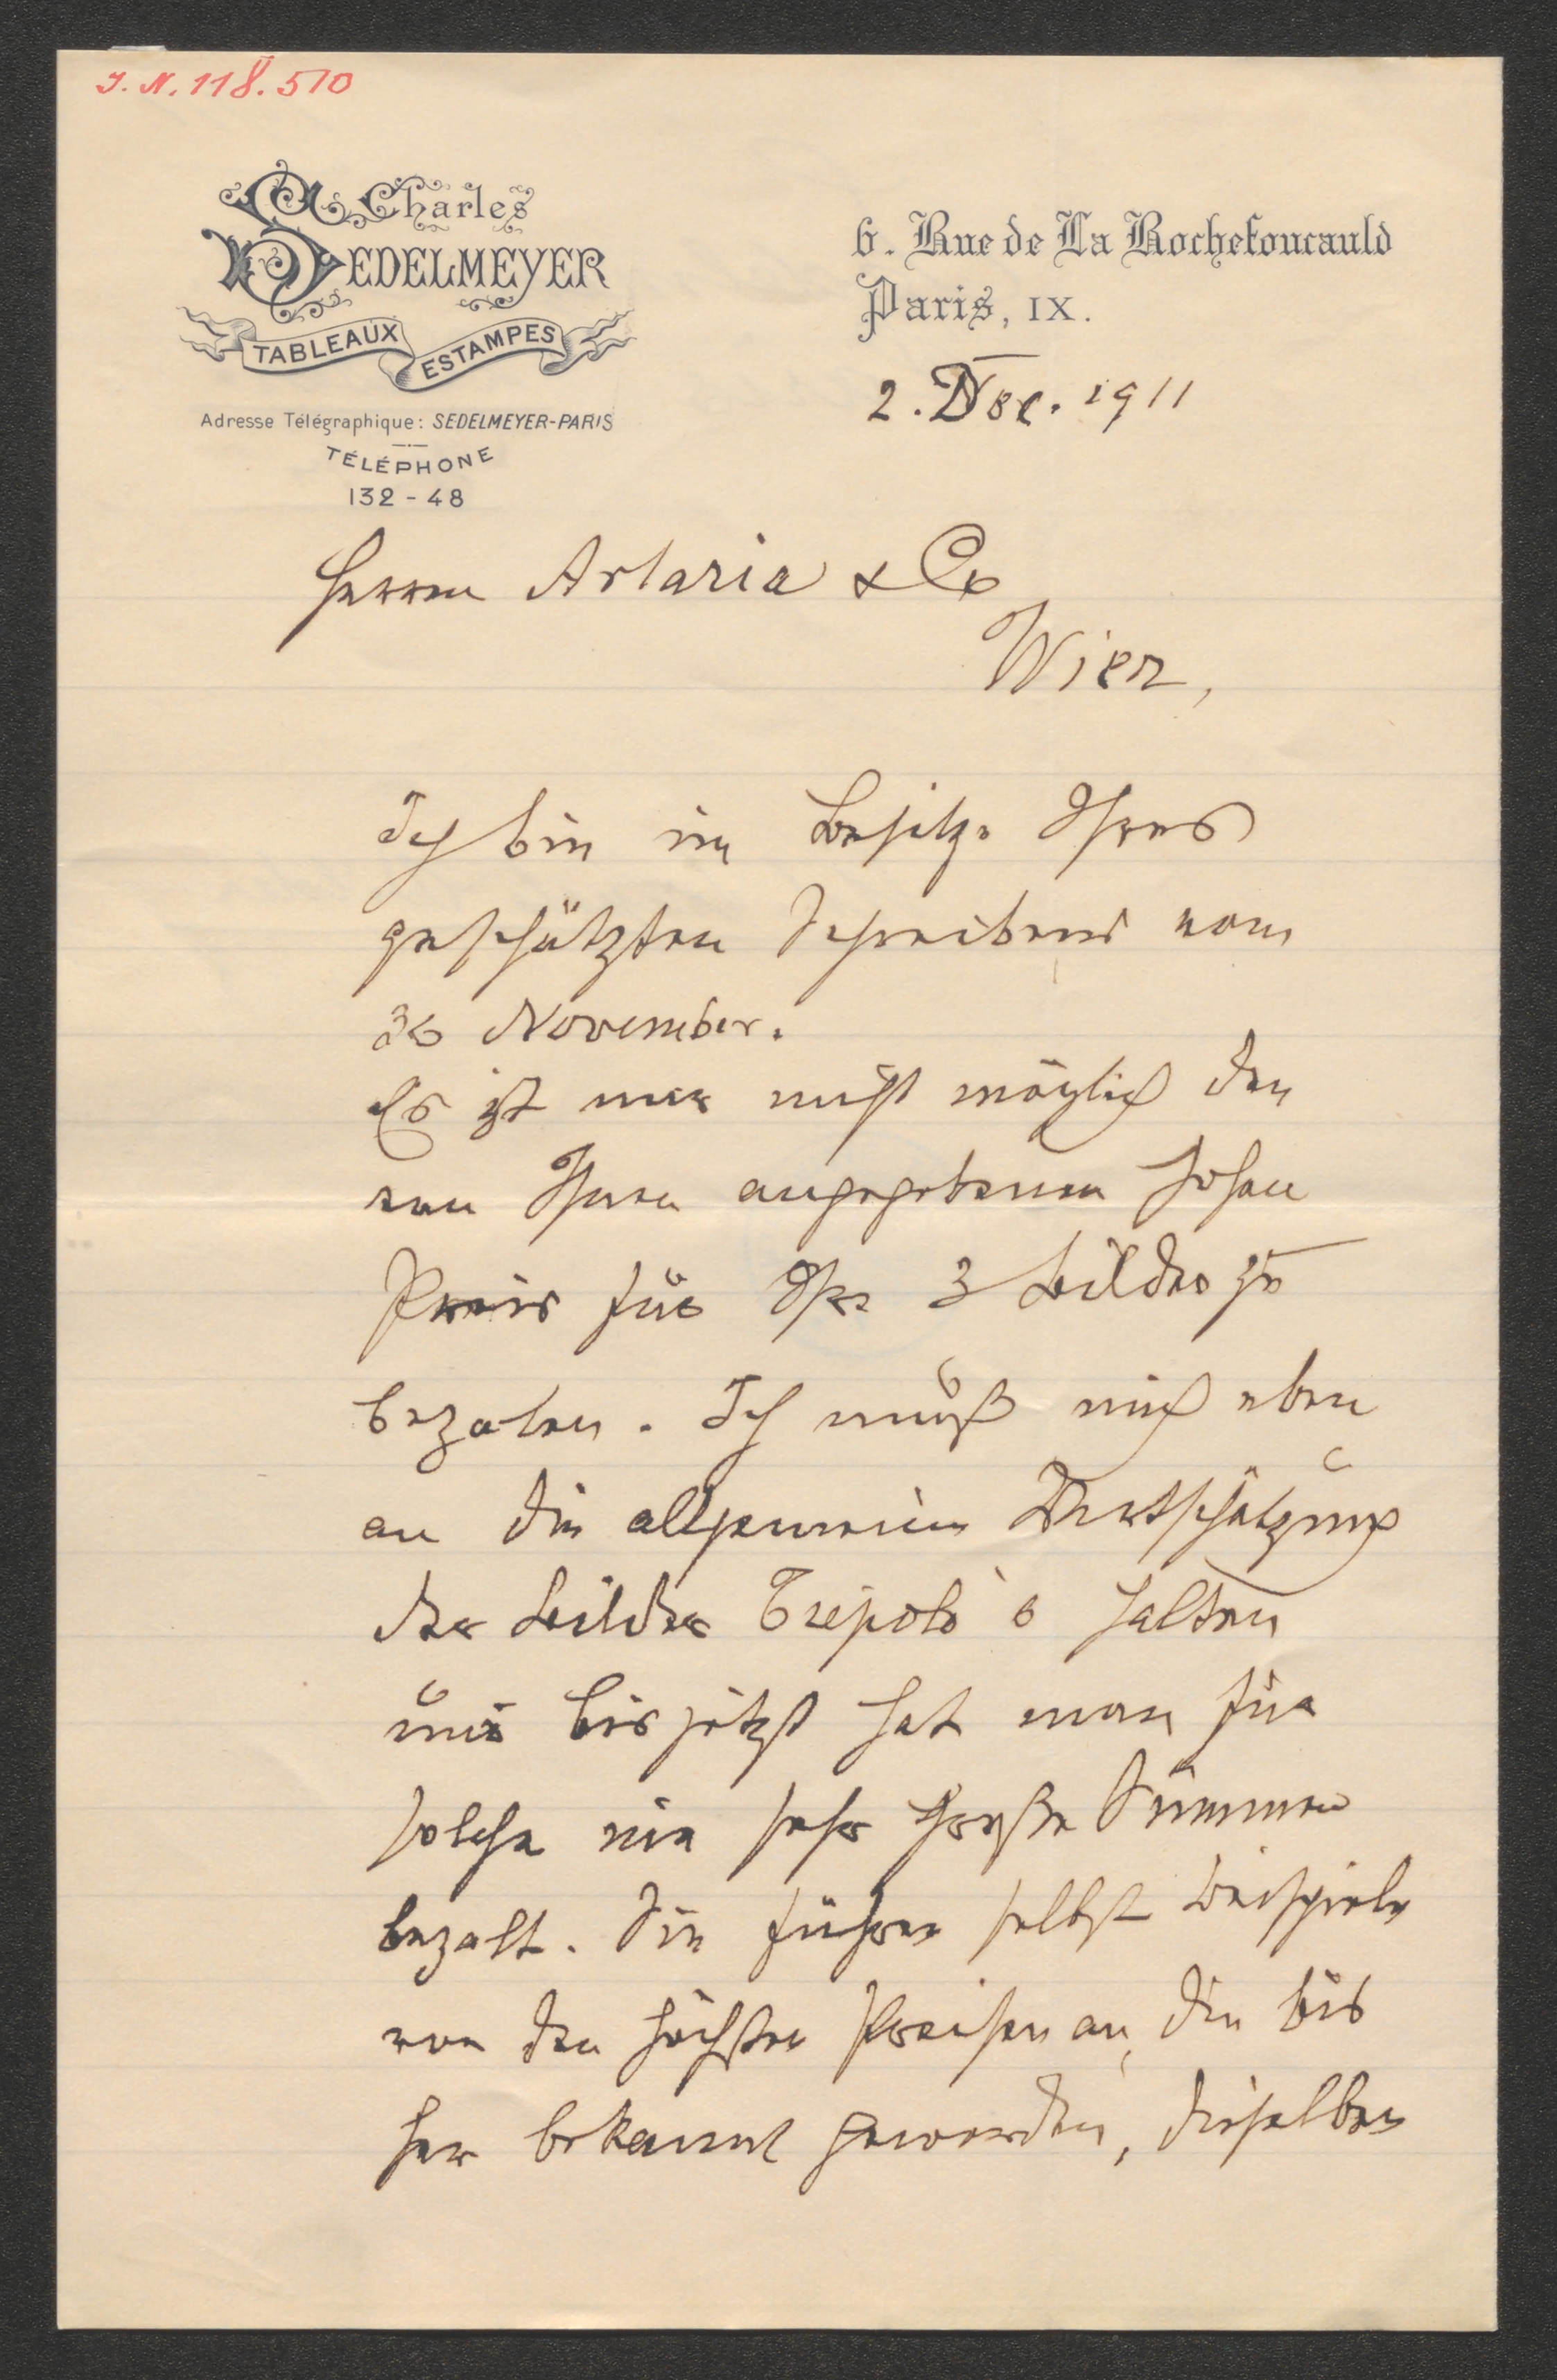 I. N. 118.510
Charles
SEDELMEYER
TABLEAUX ESTAMPES
Adresse Télégraphique: SEDELMEYER-PARIS
TÉLÉPHONE
132-48
6. Rue de La Rochefoucauld
Paris, IX.
2. Dec. 1911
Herren Artaria & Co
Wien,
Ich bin im Besitze Ihres
geschätzten Schreibens vom
30 November.
Es ist mir nicht möglich den
von Ihnen angegebenen hohen
Preis für Ihre 3 Bilder zu
bezalen. Ich muß mich eben
an die allgemeine Wertschätzung
der Bilder Tiepolo's halten
und bis jetzt hat man für
solche nie sehr große Summen
bezalt. Sie führen selbst Beispiele
von den höchsten Preisen an, die bis
her bekannt geworden, dieselben